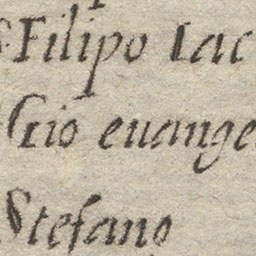 Filipo Iac
Gio euange
Stefano